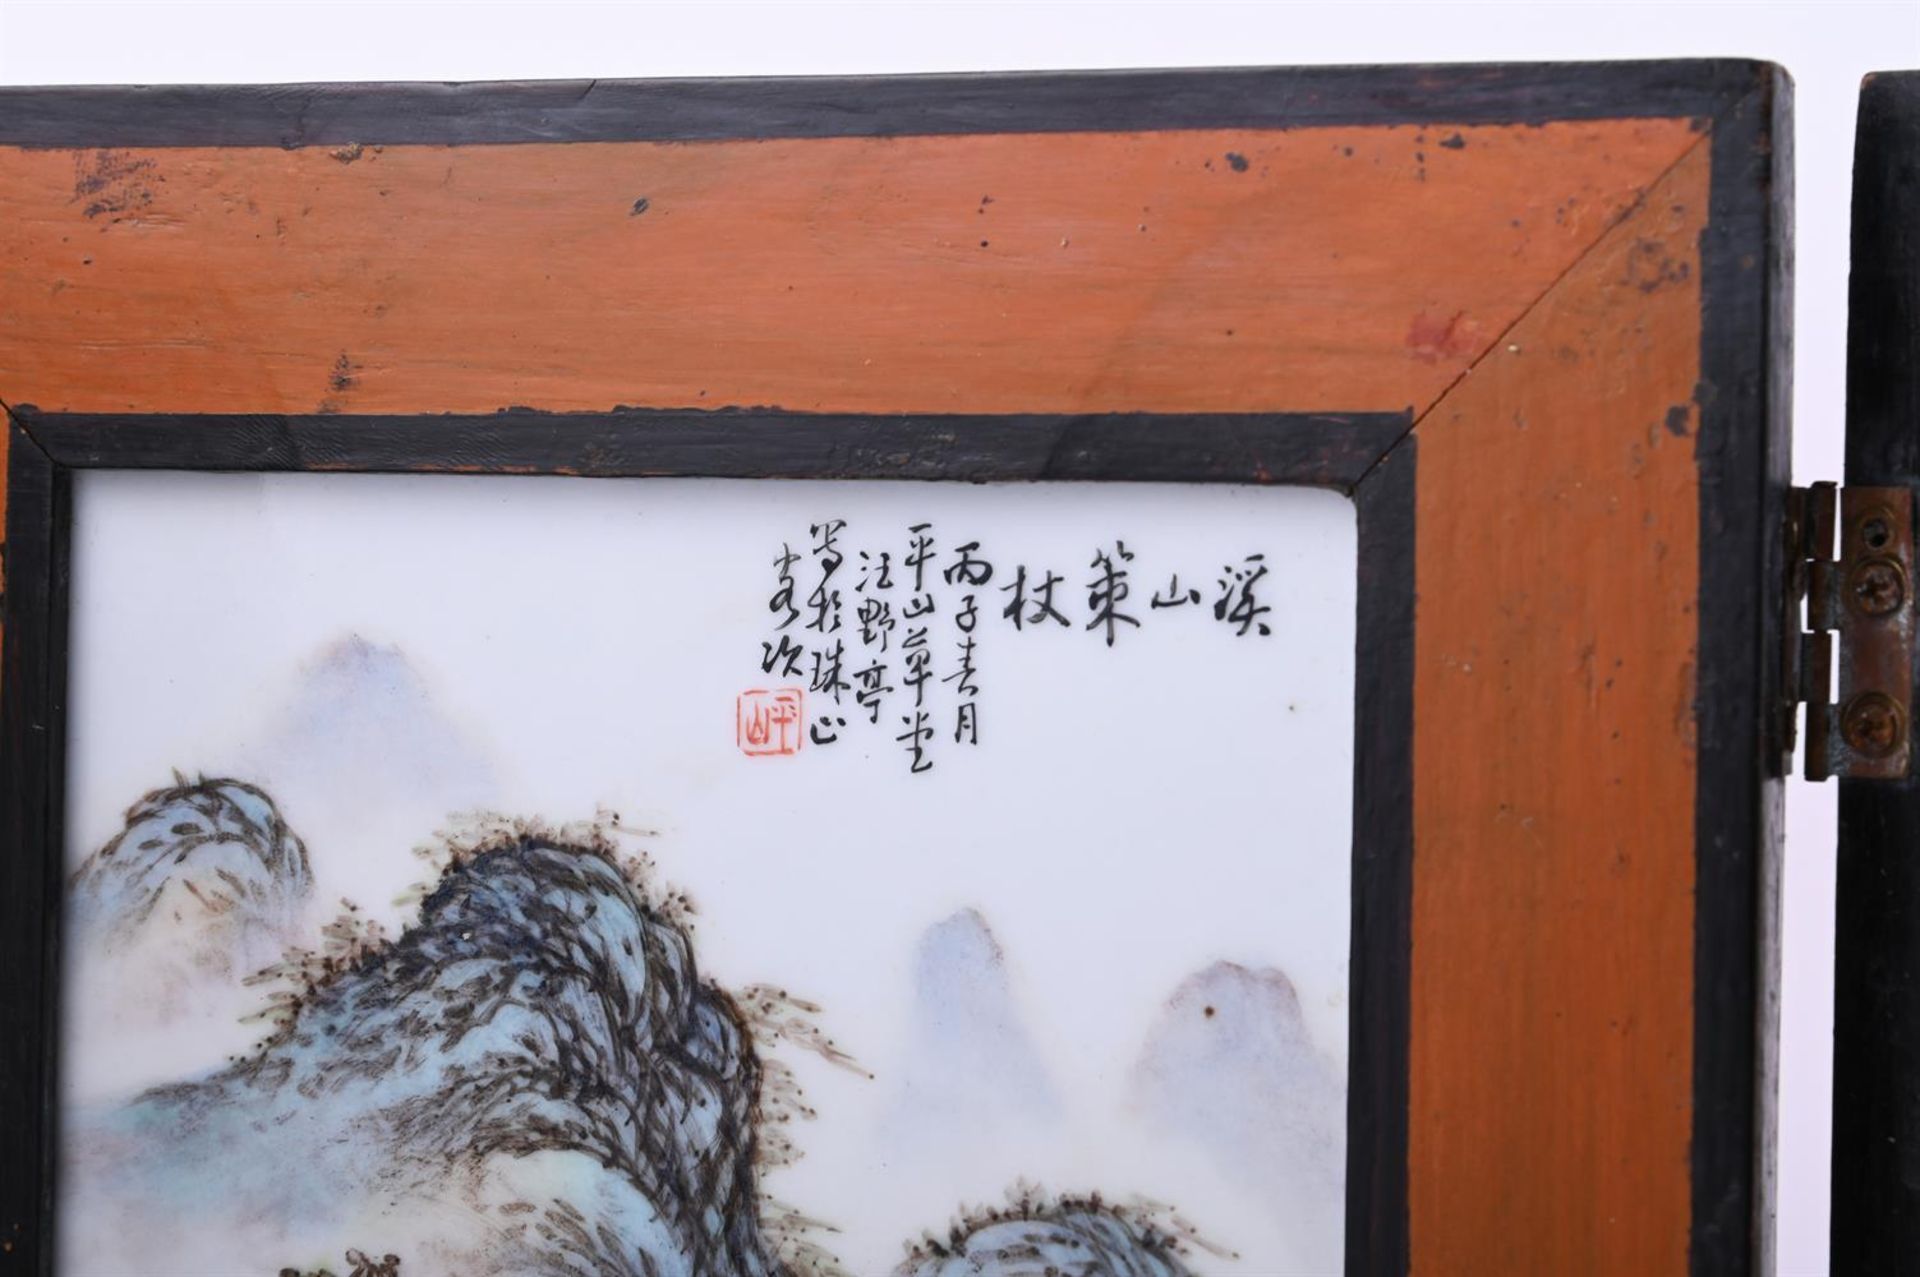 溪山策杖
丙子春月
平山草堂
汪野亭
写於珠山
客次
平山